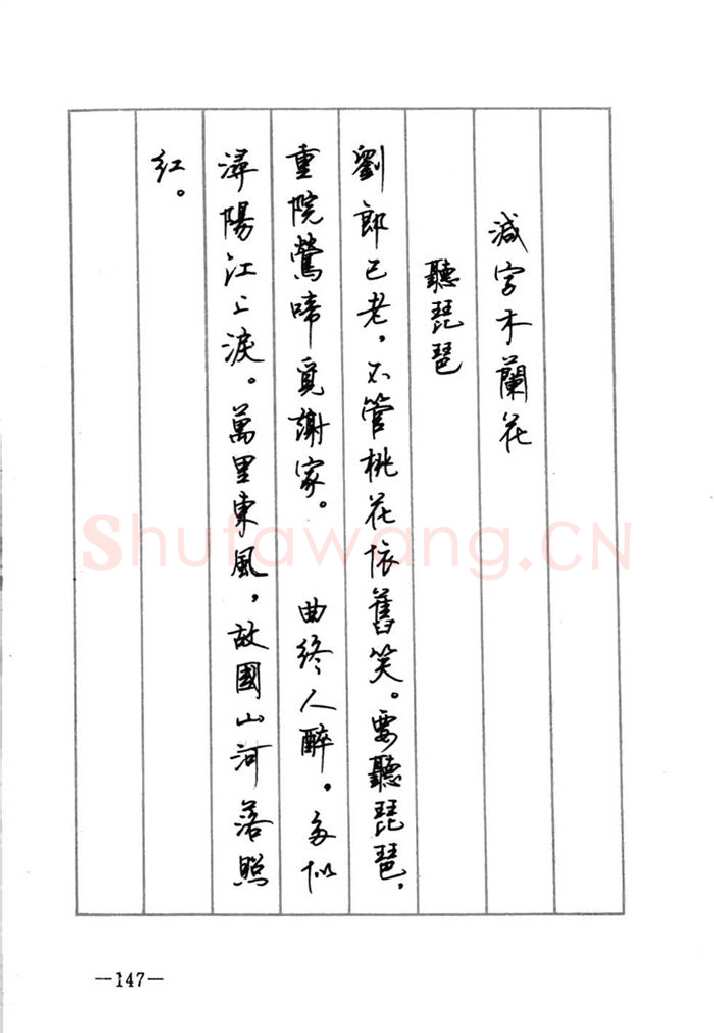 減字木蘭花
聽琵琶
劉郎已老，不管桃花依舊笑。要聽琵琶，
重院鶯啼覓謝家。 曲終人醉，多似
潯陽江上淚。萬里東風，故國山河落照
紅。
Shufawang.CN
—147—